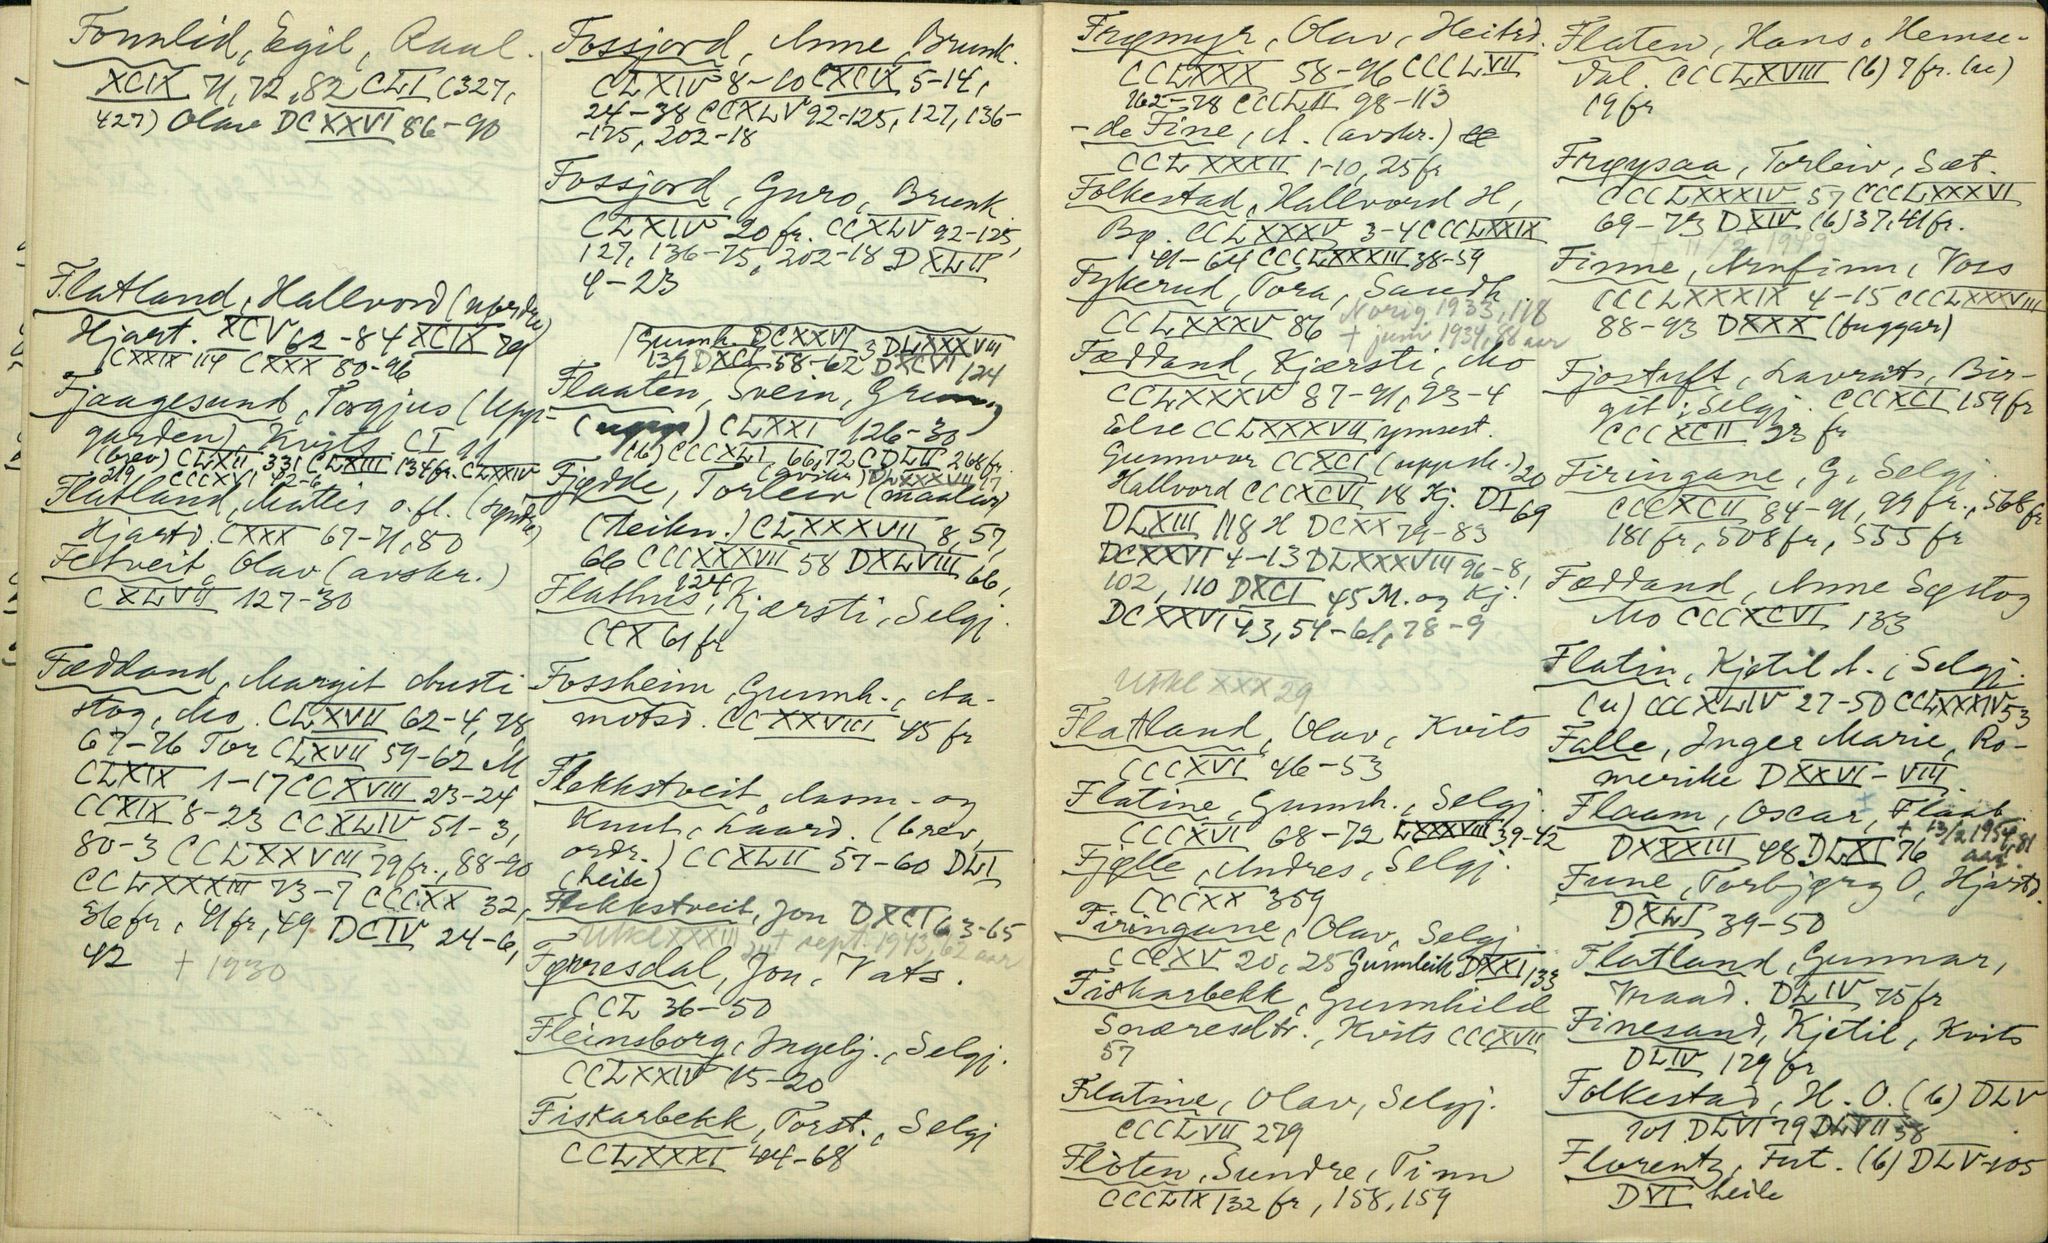 Fonnlid, Egil, Raul.
XCIX 71, 72, 82 CLI (327,
427) Olav DCXXVI 86-90
Flatland, Hallvord (nørdre)
Hjart. XCV 62-84 XCIX 79
CXXIX 114 CXXX 80-96
Fjaagesund, Torgjus (Upp-
garden), Kvits. CI 11
(brev) CLXII, 331 CLXIII 134 fr. CLXXIV
219 CCCXVI 42-6
Flatland, Mattis o.fl. (syndre)
Hjartd. CXXX 67-71, 80
Feltveit, Olav (avskr.)
CXLVII 127-30
Fæddand, Margit Austi
stog, Mo. CLXVII 62-4, 78,
67-76 Tor CLXVII 59-62 M
CLXIX 1-17 CCXVIII 23-24
CCXIX 8-23 CCXLIV 51-3,
80-3 CCLXXVIII 79 fr., 88-90
CCLXXXIII 73-7 CCCXX 32,
36 fr, 41 fr, 49 DCIV 24-6,
42 † 1930
Fossjord, Anne, Brunk.
CLXIV 8-10 CXCIX 5-14,
24-38 CCXLV 92-125, 127, 136-
-175, 202-18
Fossjord, Guro, Brunk.
CLXIV 20 fr. CCXLV 92-125,
127, 136-75, 202-18 DXLII
4-23
Gunnh. DCXXVI 3 DLXXXVIII
139 DXCI 58-62 DXCVI 124
Flaaten, Svein, Grung
(upp) CLXXI 126-30
(b) CCCXLI 66, 72 CDLII 268 fr.
Fjødde, Torleiv (maalar)
(teikn.) CLXXXVII 8, 57,
66 CCCXXXVII 58 DXLVIII 66,
124
Flathus, Kjærsti, Selgj.
CCX 61 fr
Fossheim, Gunnh., Aa-
motsd. CCXXVIII 45 fr
Flekkstveit, Aasm. og
Knut, Laard. (brev,
ordr.) CCXLII 57-60 DLI
(heile)
Flekkstveit, Jon DXCI 63-65
Utkl XXXIII 24 † sept. 1943, 62 aar
Førresdal, Jon, Vats.
CCL 36-50
Fleinsborg, Ingebj., Selgj.
CCLXXIV 15-20
Fiskarbekk, Torst., Selgj
CCLXXXI 44-68
Frøymyr, Olav, Heitrd.
CCLXXX 58-96 CCCLVII
262-78 CCCLII 98-113
-de Fine, A. (avskr.)
CCLXXXII 1-10, 25 fr
Folkestad, Hallvord H,
Bø. CCLXXXV 3-4 CCCLXXIX
41-64 CCCLXXXIII 38-59
Fykerud, Tora, Saudh.
CCLXXXV 86 Norig 1933, 118
† juni 1934, 88 aar
Fæddand, Kjærsti, Mo
CCLXXXV 87-91, 93-4
Else CCLXXXVII ymsest.
Gunnvor CCXCI (uppsk.) 20
Hallvord CCCXCVI 18 Kj. DI 69
DLXIII 118 H DCXX 79-83
DCXXVI 4-13 DLXXXVIII 96-8,
102, 110 DXCI 45 M. og Kj.
DCXXVI 43, 54-61, 78-9
Utkl XXX 29
Flatland, Olav, Kvits
CCCXVI 46-53
Flatine, Gunnh., Selgj.
CCCXVI 68-72 LXXXVIII 39-42
Fjølle, Andres, Selgj.
CCCXX 359
Firingane, Olav, Selgj
CCCXV 20, 25 Gunnleik DXXI 133
Fiskarbekk, Gunnhild
Snæresdtr., Kvits CCCXVII
57
Flatine, Olav, Selgj.
CCCLVII 279
Flòten, Sundre, Tinn
CCCLIX 132 fr, 158, 159
Flaten, Hans, Hemse-
dal. CCCLXVIII (b) 7 fr. (u)
19 fr
Frøysaa, Torleiv, Sæt.
CCCLXXXIV 57 CCCLXXXVI
69-73 DXIV (b) 37, 41 fr.
Finne, Arnfinn, Voss
CCCLXXXIX 4-15 CCCLXXXVIII
88-93 DXXX (fuggar)
Fjostuft, Lavrants, Bir-
git, Selgj. CCCXCI 159 fr
CCCXCII 23 fr
Firingane, G, Selgj.
CCCXCII 84-91, 99 fr., 568 fr
181 fr, 508 fr, 555 fr
Fæddand, Anne Søstog
Mo CCCXCVI 133
Flatin, Kjetil A., Selgj.
(u) CCCXLIV 27-50 CCLXXXIV 53
Falle, Inger Marie, Ro-
merike DXXVI-VIII
Flaam, Oscar, Flaab.
† 13/2 1954, 81 aar.
DXXXIII 48 DLXI 76
Fune, Torbjørg O, Hjartd.
DXLI 39-50
Flatland, Gunnar,
Vraad. DLIV 75 fr
Finesand, Kjetil, Kvits
DLIV 129 fr
Folkestad, H. O. (b) DLV
101 DLVI 79 DLVII 58
Florentz, Fut. (b) DLV-105
DVI heile